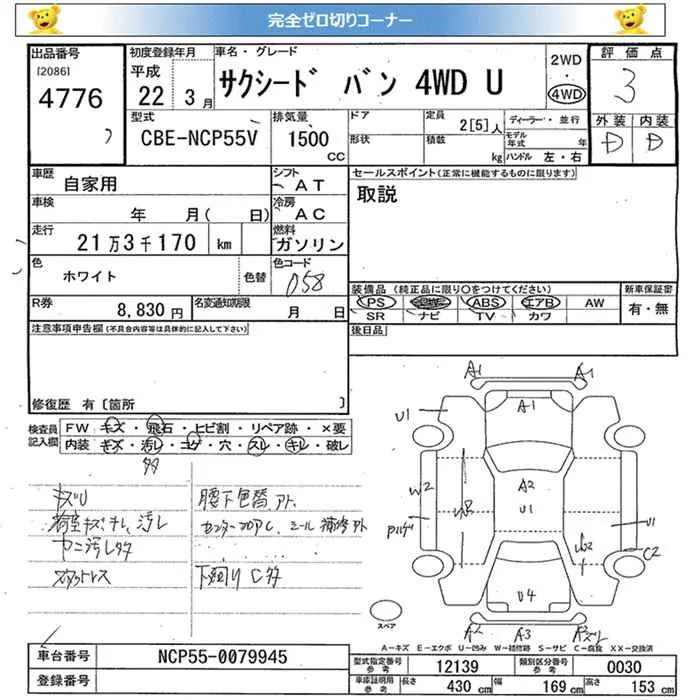 完全ゼロ切りコーナー
出品番号
[2086]
4776
初度登録年月
平成
22年 3月
車名・グレード
サクシード バン 4WD U
2WD
・
4WD
評価点
3
外装 内装
D D
型式
CBE-NCP55V
排気量
1500
CC
ドア
形状
定員 2[5]人
積載 kg
ディーラー・並行
モデル年式 年
ハンドル 左・右
車歴
自家用
シフト
AT
車検
年 月( 日)
冷房
AC
走行
21万3千170 km
燃料
ガソリン
色
ホワイト
色替
色コード
058
R券
8,830円
名変通知期限
月 日
セールスポイント(正常に機能するものに限ります)
取説
装備品 (純正品に限り○をつけてください)
PS ABS エアB AW
SR ナビ TV カワ
新車保証書
有・無
後日品
注意事項申告欄(不具合内容等は具体的に記入して下さい)
修復歴 有〔箇所 〕
検査員記入欄
FW キズ・飛石・ヒビ割・リペア跡・×要
内装 キズ・汚レ・コゲ・穴・スレ・キレ・破レ
多
キズU
荷室キズキレ汚レ
ヤニ汚レ多
スタットレス
腰下色替アト
センターフロアC、シール補修アト
下廻りC多
A1 A1
A1
U1
A2
U1
W2
W2
W2
U1
C2
U4
A2 A3
スペア
A-キズ E-エクボ U-凹み W-補修跡 S-サビ C-腐食 XX-交換済
車台番号
NCP55-0079945
登録番号
型式指定番号 参考
12139
類別区分番号 参考
0030
車庫証明用 参考
長さ 430cm 幅 169cm 高さ 153cm